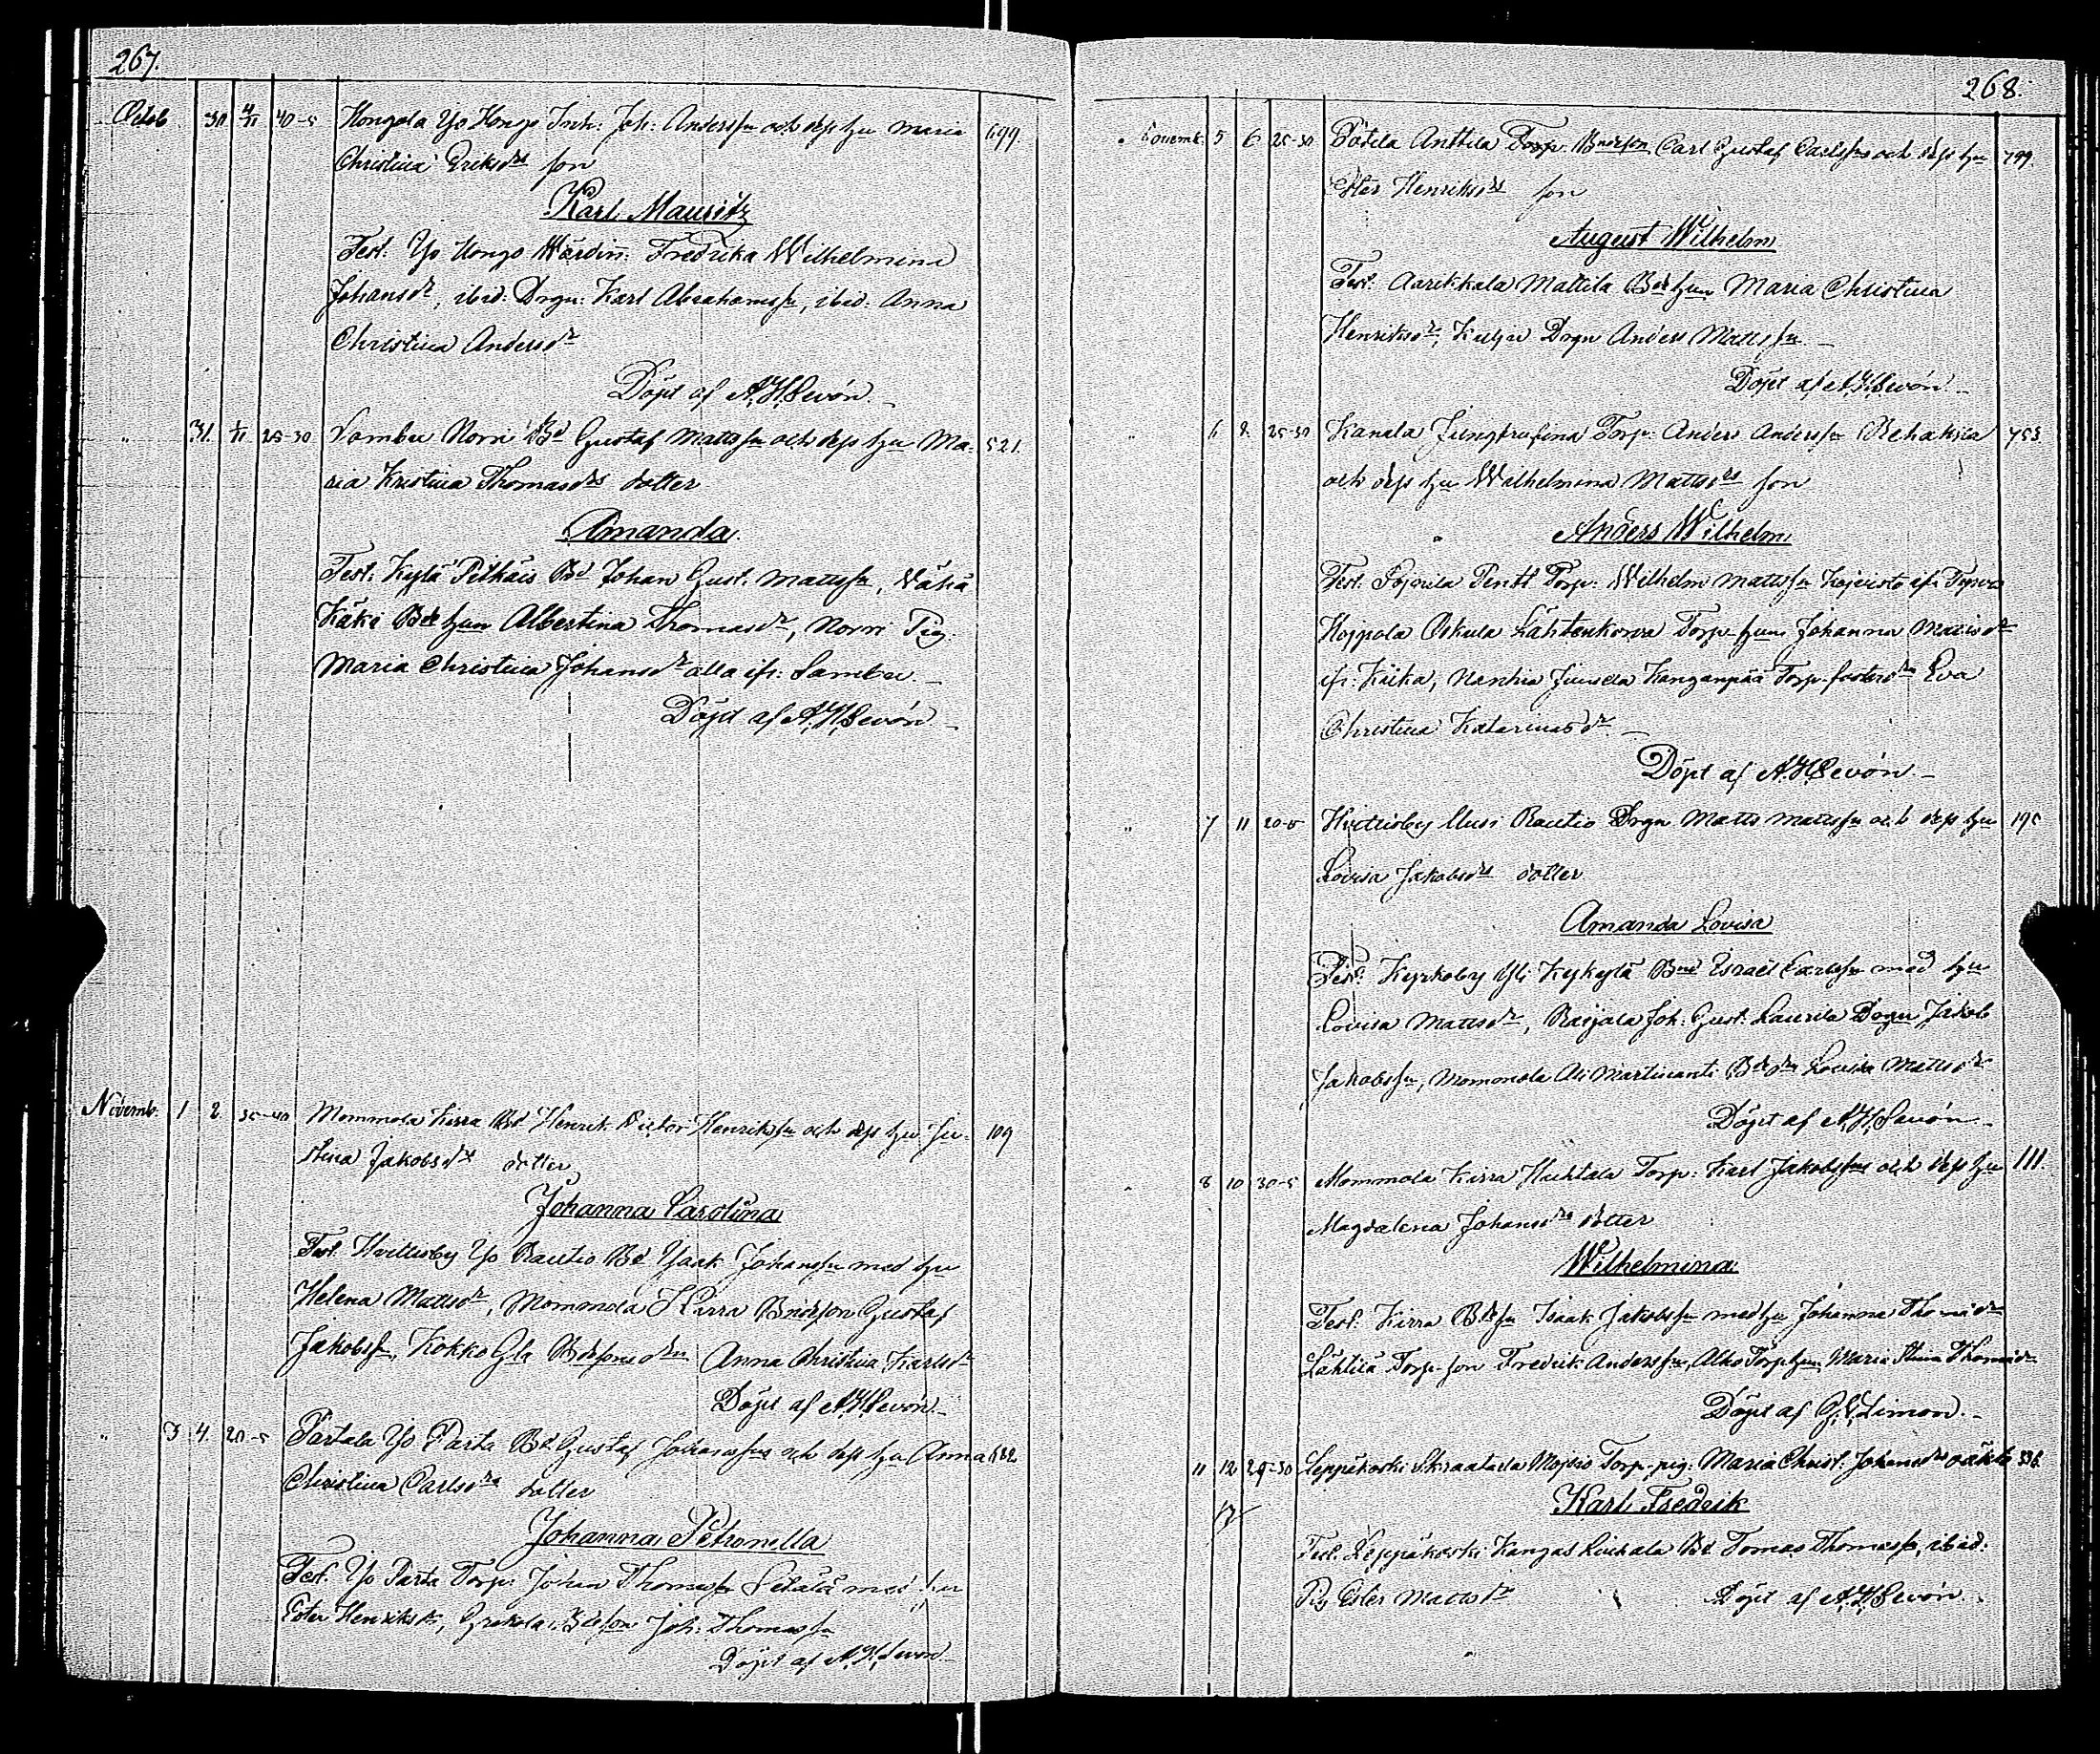 267.
Octob. 30 4/11 40-5 Hongola Yo Hongo Inh: Joh: Anderssn och dess hu Maria 699.
Christina Eriksdrs son
Karl Mauritz
Test. Yo Hongo Wärdinn: Fredrika Wilhelmina
Johansdr, ibid: Drgn: Karl Abrahamssn, ibid: Anna
Christina Andersdr
Döpt af A.H.Sevón.
„ 31. /11 25-30 Sambu Norri Bd Gustaf Mattssn och dess hu Ma- 521.
ria Kristina Thomasdrs dotter
Amanda.
Test: Kylä Pitkäis Bd Johan Gust. Mattssn, Vähä
Käki Bde hun Albertina Thomasdr, Norri Pig.
Maria Christina Johansdr alla ifr: Sambu.
Döpt af A.H.Sevón
Novemb. 1 2. 35-40 Mommola Kirra Bd Henrik Victor Henrikssn och dess hu Ju- 109
stina Jakobsdrs dotter
Johanna Carolina
Test. Hvittisby Yo Rautio Bd Isaak Johanssn med hu
Helena Mattsdr, Mommola Kirra Bndeson Gustaf
Jakobssn, Kokko Gla Bdesonsdrn Anna Christina Karlsdr
Döpt af A.H.Sevón
„ 3 4. 20-5 Partala Yo Parta Bd Gustaf Johanssns och dess hu Anna 582
Christina Carlsdrs dotter
Johanna Petronella
Test. Yo Parta Torp: Johan Thomassn Setälä med hu
Ester Henriksdr, Grekola Bdeson Joh: Thomassn
Döpt af A.H.Sevón
268.
Novemb. 5 6 25-30 Potila Anttila Torp. Bndeson Carl Gustaf Carlssns och dess hu 799.
Ester Henriksdrs son
August Wilhelm
Test. Aarikkala Mattila Bde hun Maria Christina
Henriksdr, Drgn Anders Mattssn
Döpt af A.H.Sevón
„ 6 8. 25-30 Kanala Jungfrufina Torp: Anders Anderssn Rehakka 753.
och dess hu Wilhelmina Mattsdrs son
Anders Wilhelm
Test. Pentt Torp: Wilhelm Mattssn Kojvisto ifr
Lähtenkorva Torp-hun Johanna Mattsdr
ifr: Kiika, Juusela Kanganpää Torp. Eva
Christina Katarinasdr
Döpt af A.H.Sevón
„ 7 11 20-5 Hvittisby Uusi Rautio Drgn Matts Mattssn och dess hu 195
Lovisa Jakobsdrs dotter
Amanda Lovisa
Test. Kyrkoby Yli Kykylä Bnd Israel Carlssn med hu
Lovisa Mattsdr, Raijala Joh: Gust: Laurila Drgn Jakob
Jakobssn, Mommola Ali Martinanti Bdedr Lovisa Mattsdr
Döpt af A.H.Sevón
„ 8 10 30-5 Mommola Kirra Huhtala Torp: Karl Jakobssns och dess hu 111.
Magdalena Johansdrs dotter
Wilhelmina
Test. Kirra Bdesn Isaak Jakobssn med hu Johanna Thomasdr
Lähtilä Torp-son Fredrik Anderssn, Alho Torp hun Maria Stina Thomasdr
Döpt af G.L.Limon.
11 12 29-30 Leppäkoski Skraatarla Moisio Torp-pig: Maria Christ: Johansdrs oäkta 336.
Karl Fredrik
Test. Leppäkoski Kangas Liuhala Bd Tomas Thomassn, ibid:
Pig Ester Mattsdr Döpt af A.H.Sevón